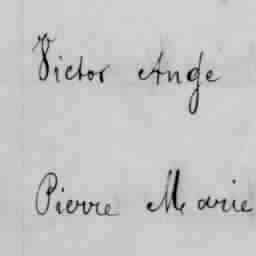 Victor Ange
Pierre Marie